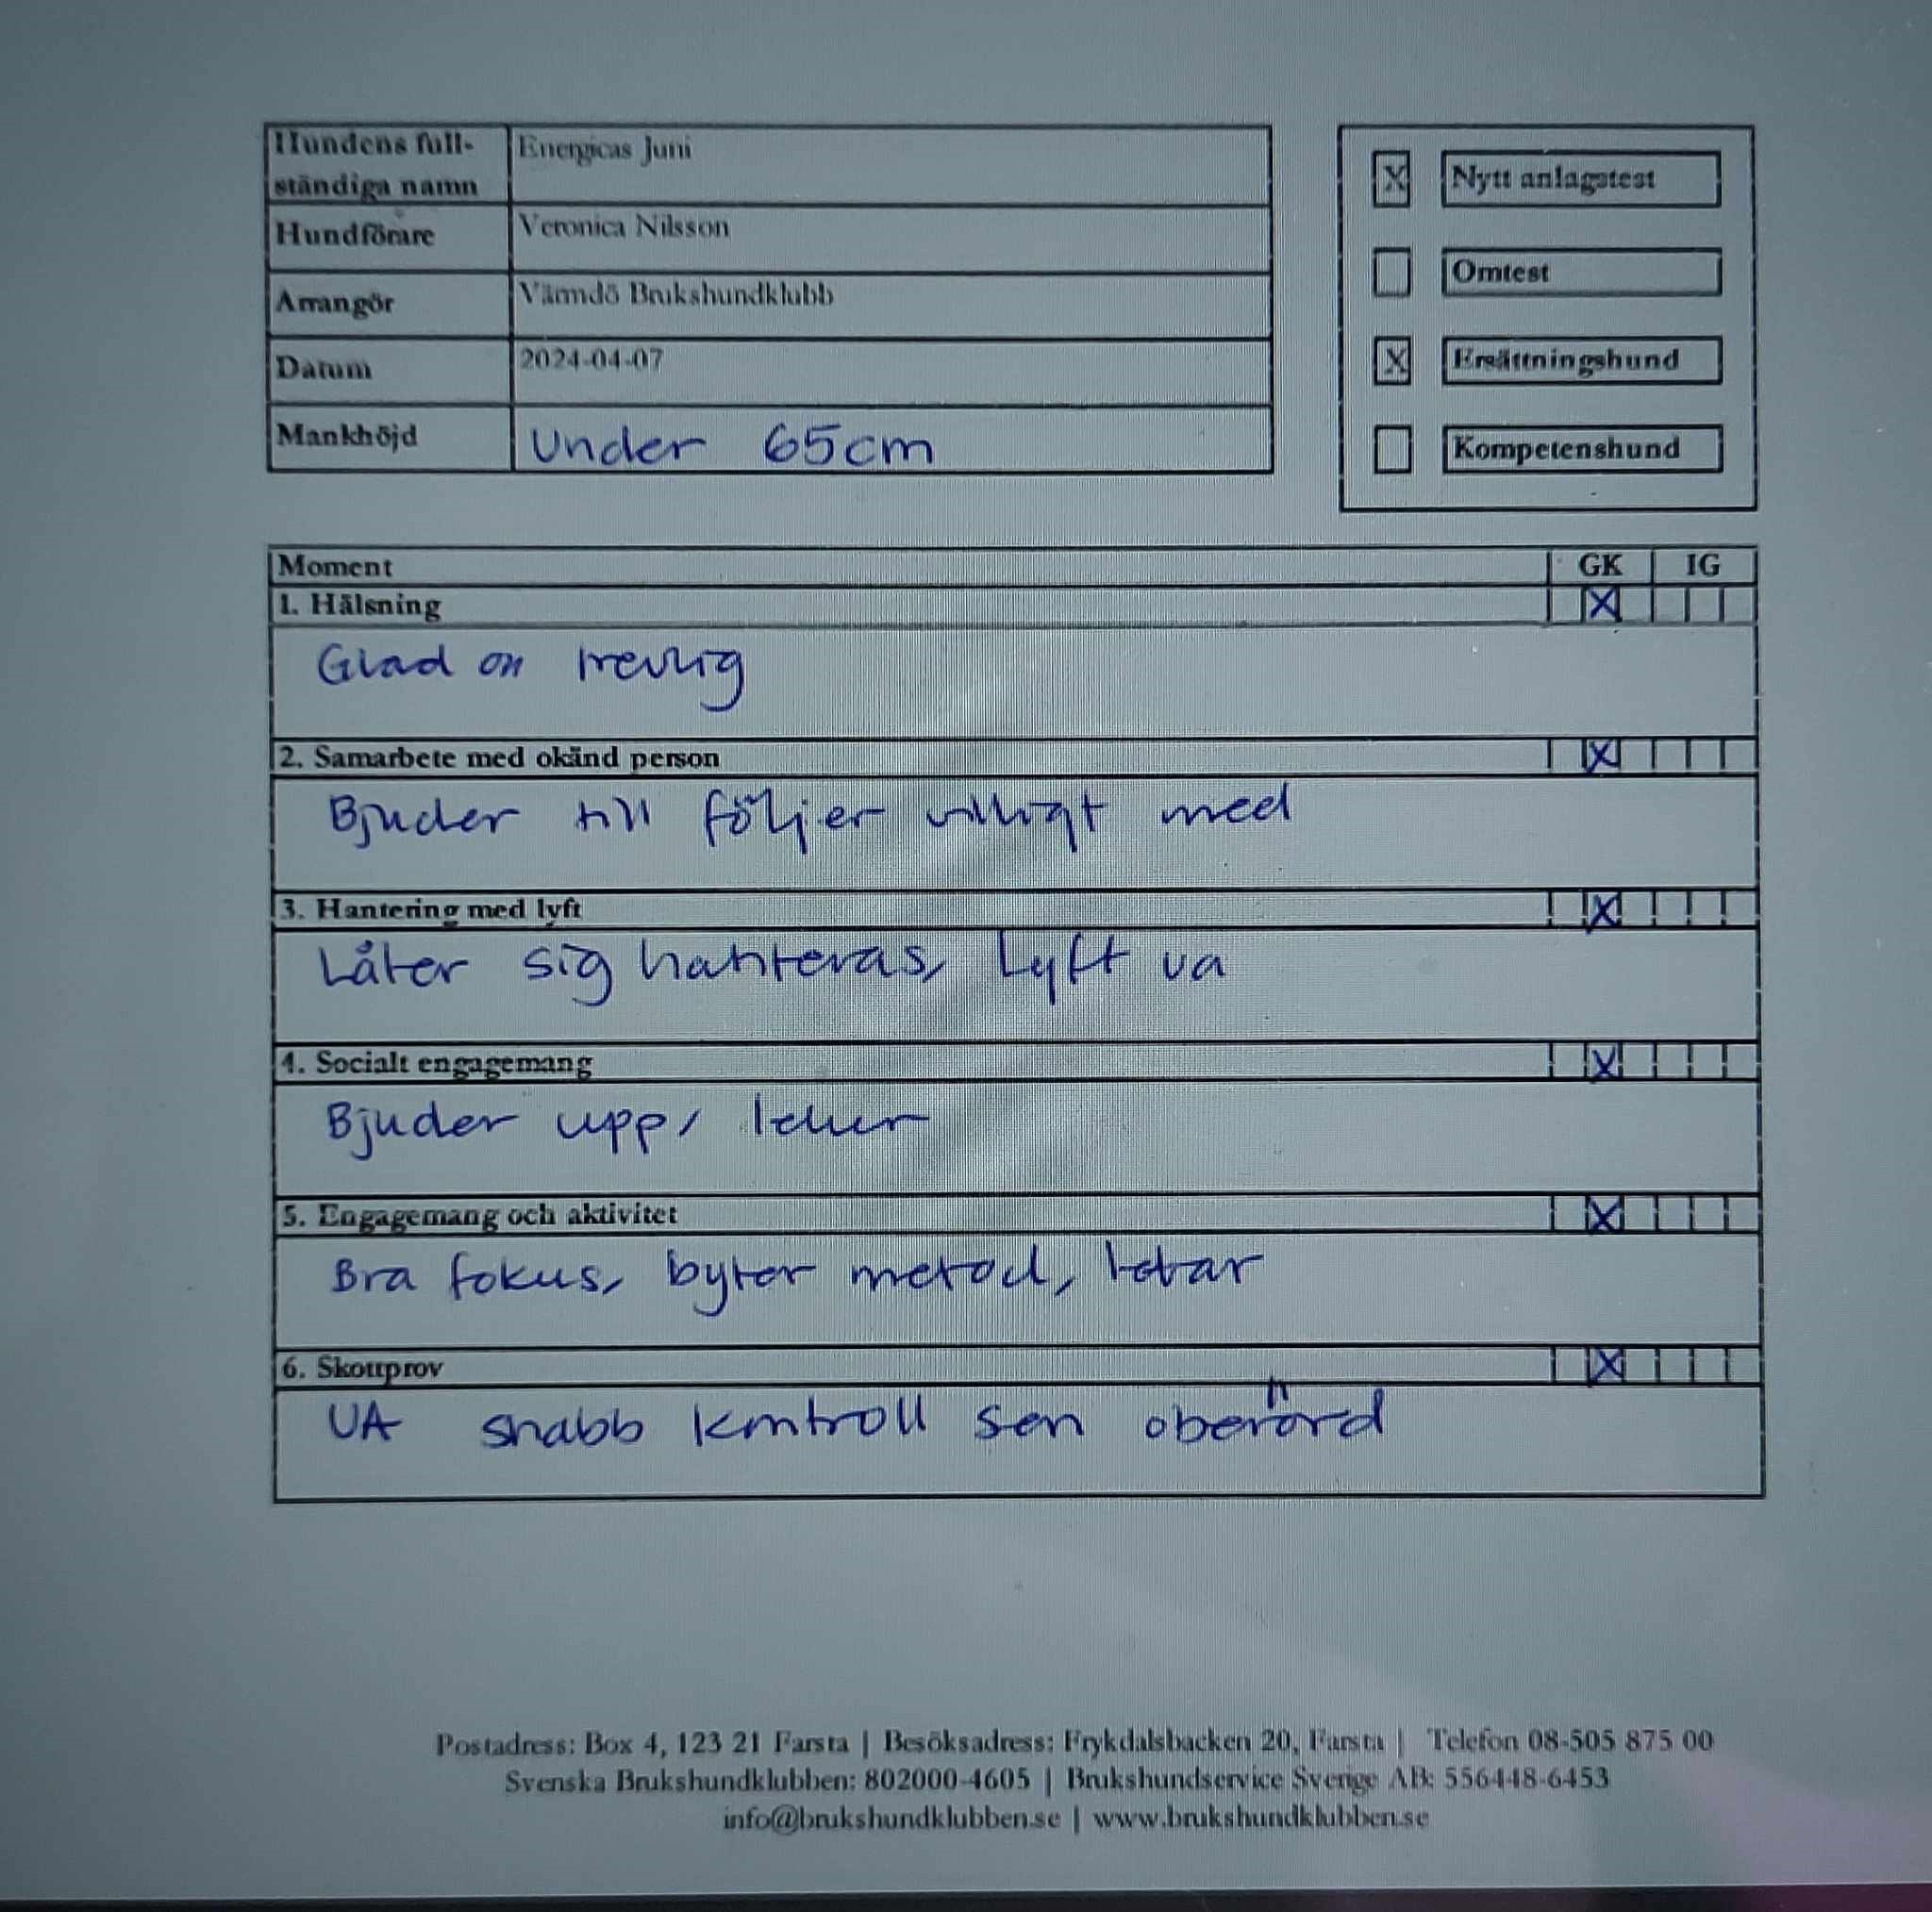 Hundens full-
ständiga namn
Energicas Juni
Hundförare
Veronica Nilsson
Arrangör
Värmdö Brukshundklubb
Datum
2024-04-07
Mankhöjd
Under 65cm
X Nytt anlagstest
Omtest
X Ersättningshund
Kompetenshund
Moment GK IG
1. Hälsning X
Glad och trevlig
2. Samarbete med okänd person X
Bjuder till följer villigt med
3. Hantering med lyft X
Låter sig hanteras, Lyft ua
4. Socialt engagemang X
Bjuder upp, leker
5. Engagemang och aktivitet X
Bra fokus, byter metod, letar
6. Skottprov X
UA snabb kontroll sen oberörd
Postadress: Box 4, 123 21 Farsta | Besöksadress: Frykdalsbacken 20, Farsta | Telefon 08-505 875 00
Svenska Brukshundklubben: 802000-4605 | Brukshundservice Sverige AB: 556448-6453
info@brukshundklubben.se | www.brukshundklubben.se